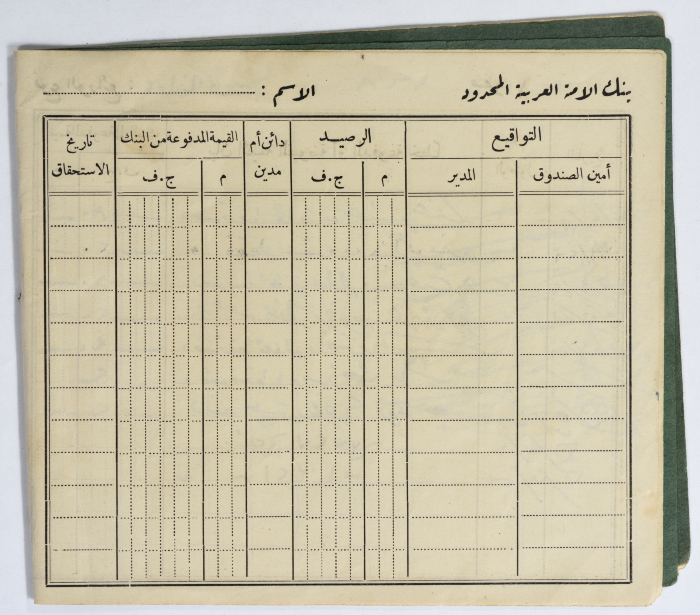 بنك الامة العربية المحدود الاسم :
التواقيع الرصيد دائن أم مدين القيمة المدفوعة من البنك تاريخ الاستحقاق
أمين الصندوق المدير م ج.ف م ج.ف